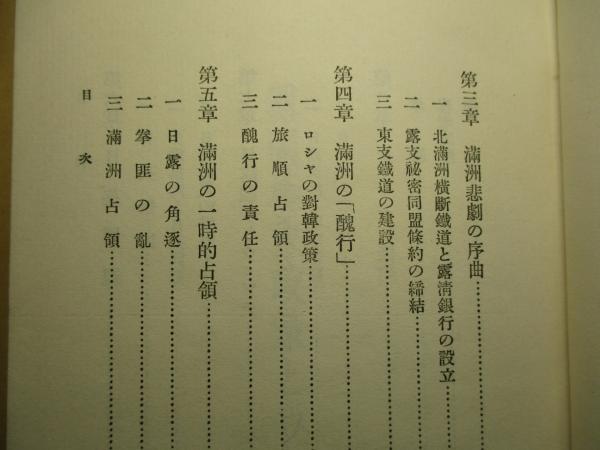 第三章 滿洲悲劇の序曲
一 北滿洲橫斷鐵道と露淸銀行の設立
二 露支祕密同盟條約の締結
三 東支鐵道の建設
第四章 滿洲の「醜行」
一 ロシヤの對韓政策
二 旅順占領
三 醜行の責任
第五章 滿洲の一時的占領
一 日露の角逐
二 拳匪の亂
三 滿洲占領
目次